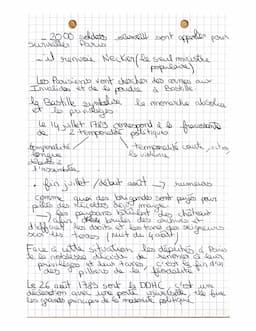 - 2000 soldats
sont appelés pour
surveiller Paris
- il renvoie Necker (le seul ministre
populaire)
Les Parisiens vont chercher des armes aux
Invalides et de la poudre à Bastille
la Bastille symbolise la monarchie absolue
et les privilèges
Le 14 juillet 1789 correspond à le
de 2 temporalités politiques
temporalité
longue
l'assemblée
temporalité courte,
la violence
• fin juillet / début août → rumeurs
comme quoi des brigands sont payés pour
les paysans
des château
brûler des archives et
les droits et les titres des seigneurs
sur les terres (nuit du 4 août)
Face à cette situation les députés
de la noblesse décide de renoncer à leurs
privilèges et leur
c'est la fin d'un
des piliers de la féodalité
Le 26 août 1789 sort la DDHC, c'est une
déclaration avec une portée universelle elle fixe
les grands principes de la modernité politique